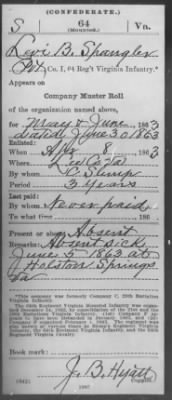 (CONFEDERATE.)
S 64 Va.
(Mounted.)
Levi B. Spangler
Pvt, Co. I, 64 Reg't Virginia Infantry.*
Appears on
Company Muster Roll
of the organization named above,
for May & June, 1863
dated June 30 1863
Enlisted:
When Apr 8, 1863
Where Lee Co Va
By whom C. Slump
Period 3 years
Last paid:
By whom Never paid
To what time 186
Present or absent Absent
Remarks: Absent sick
June 5 1863 at
Holston Springs
Va
*This company was formerly Company C, 29th Battalion
Virginia Infantry.
Book mark:
J. B. Hyatt
Copyist.